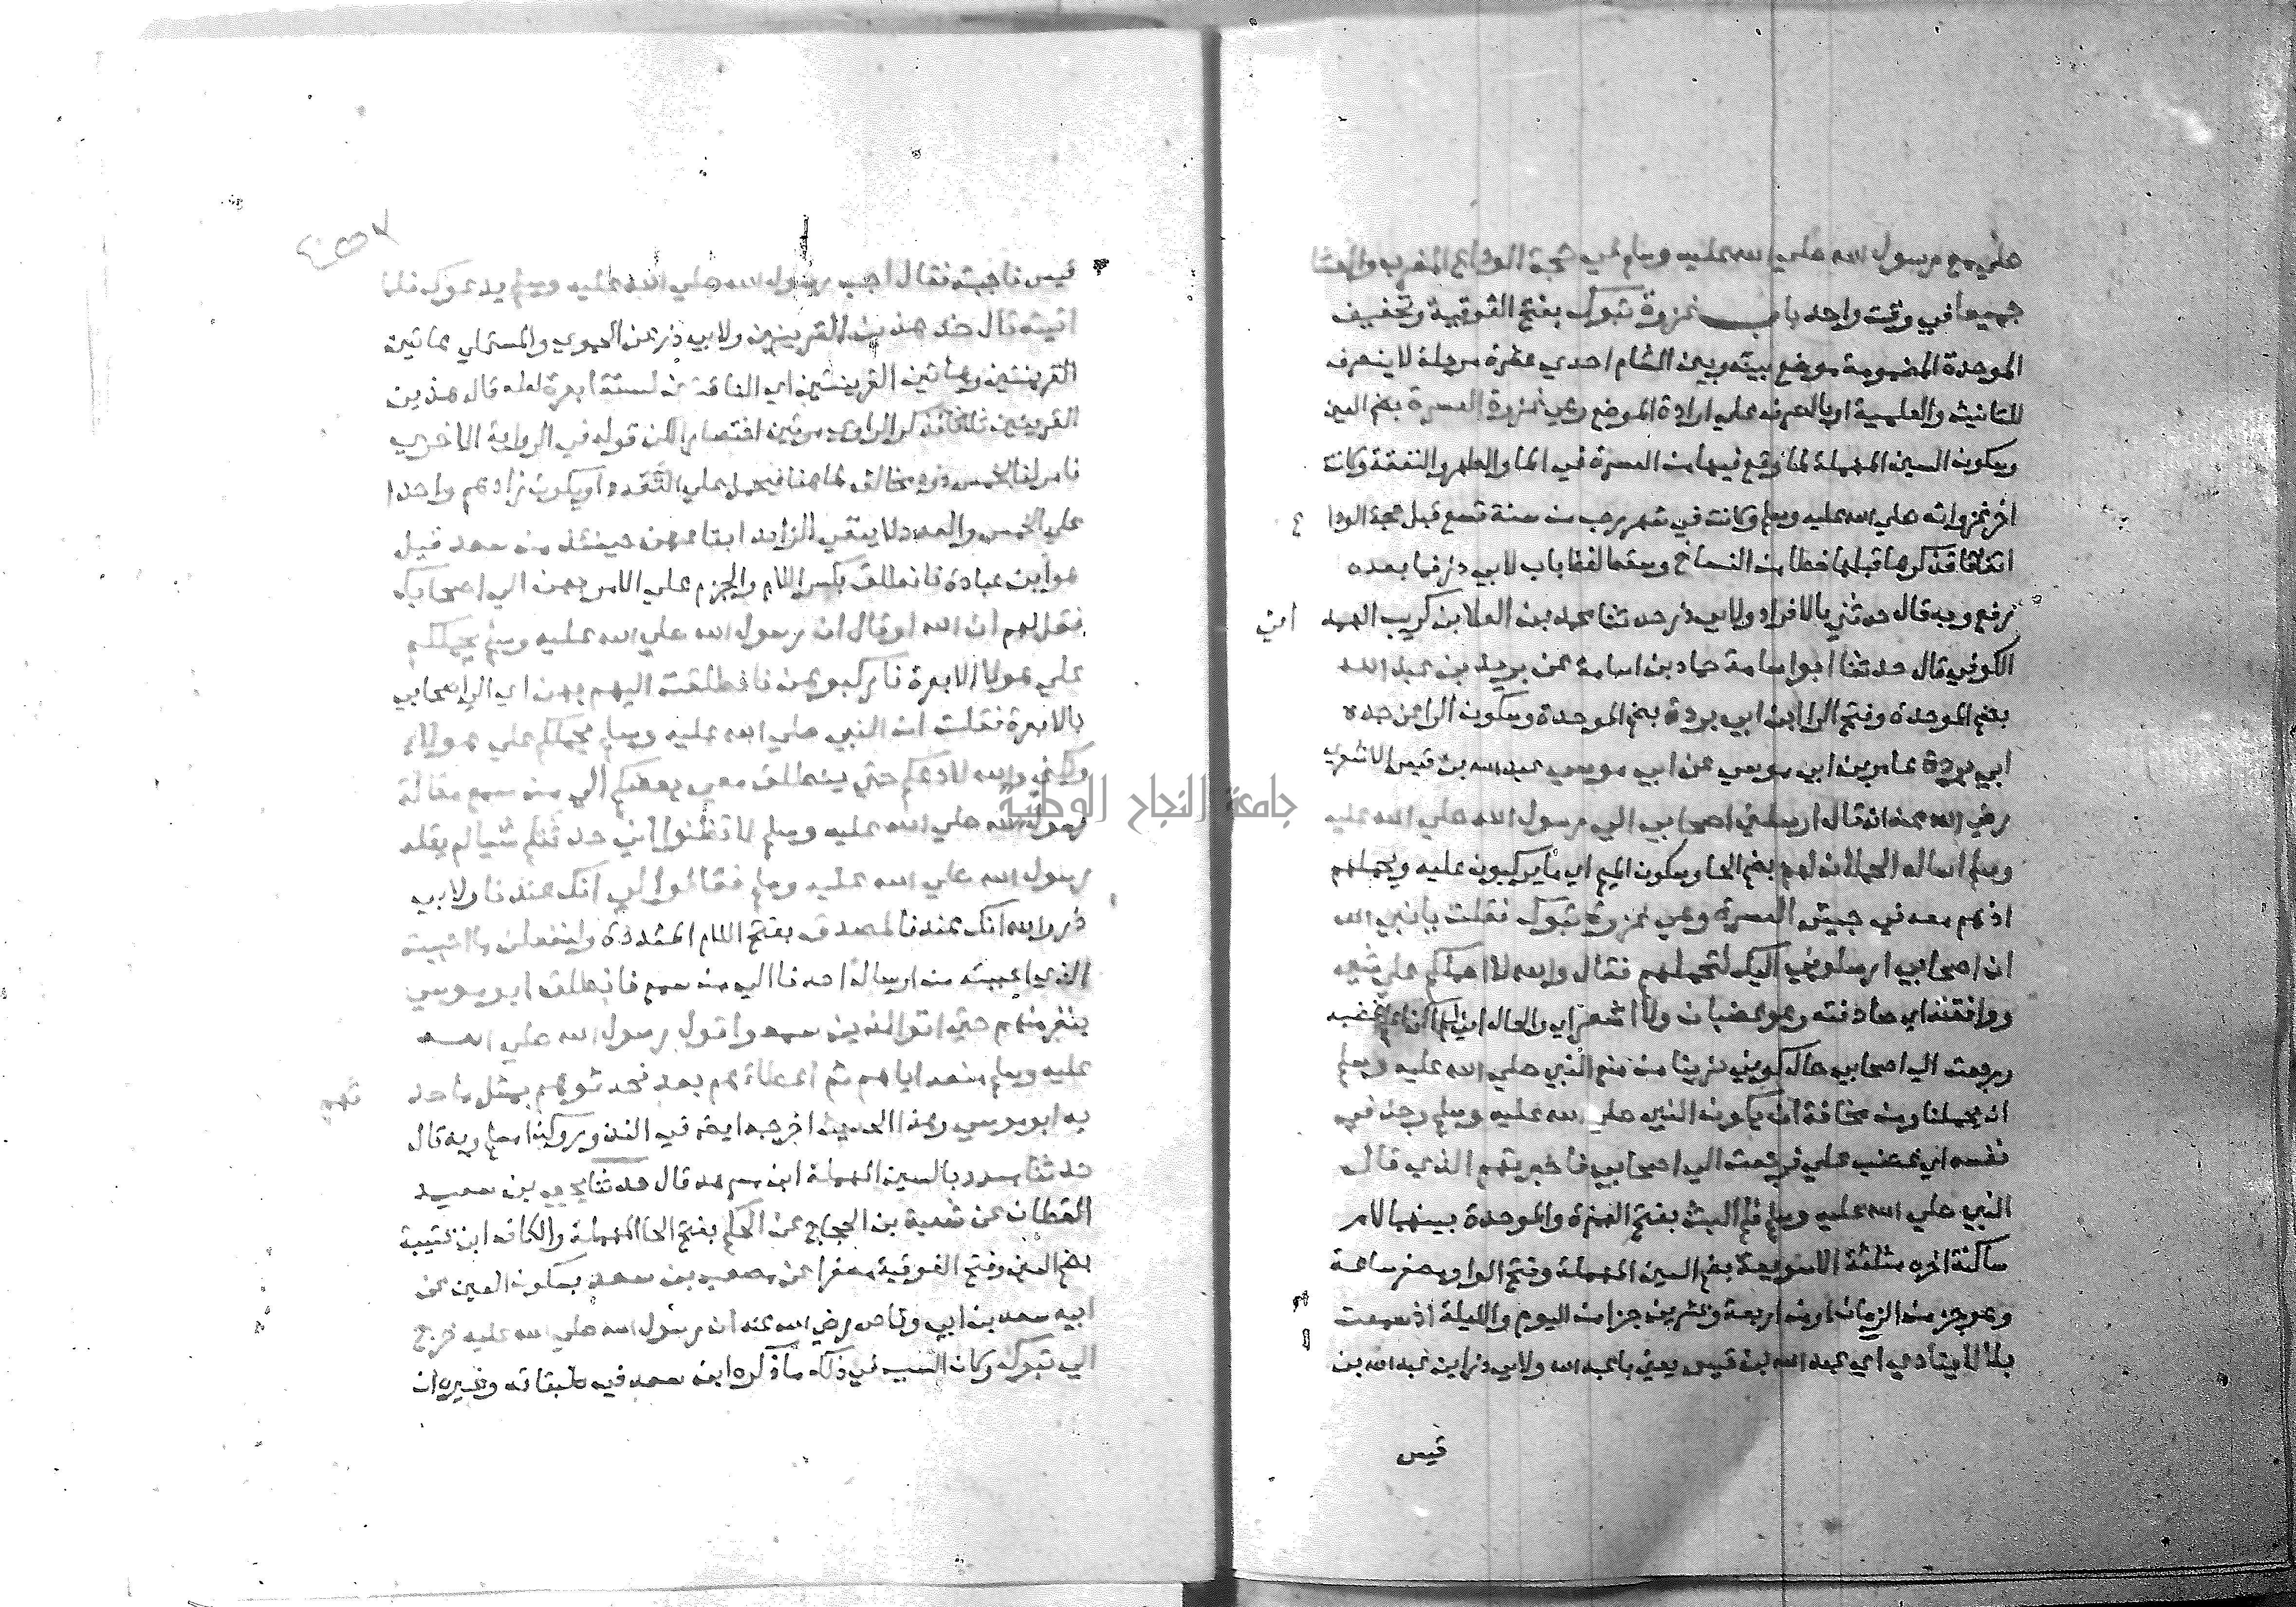 صلي مع رسول الله صلي الله عليه وسلم في حجة الوداع المغرب والعشا
جميعا في وقت واحد باب غزوة تبوك بفتح الفوقية وتخفيف
الموحدة المضمومة موضع بينه وبين الشام احدي عشرة مرحلة لا ينصرف
للتانيث والعلمية او بالصرف علي ارادة الموضع وهي غزوة العسرة بضم العين
وسكون السين المهملة لما وقع فيها من العسرة في الما والظهر والنفقة وكانت
اخر غزواته صلي الله عليه وسلم وكانت في شهر رجب من سنة تسع قبل حجة الودا ع
اتفاقا فذكرها قبلها خطا من النساخ وسقط لفظ باب لابي ذر فما بعده
رفع وبه قال حدثني بالافراد ولابي ذر حدثنا محمد بن العلا بن كريب الهمد اني
الكوفي قال حدثنا ابو اسامة حماد بن اسامة عن بريد بن عبد الله
بضم الموحدة وفتح الرا ابن ابي بردة بضم الموحدة وسكون الرا عن جده
ابي بردة عامر بن ابي موسي عن ابي موسي عبد الله بن قيس الاشعري
رضي الله عنه انه قال ارسلني اصحابي الي رسول الله صلي الله عليه
وسلم اساله الحملان لهم بضم الحا وسكون الميم اي ما يركبون عليه ويحملهم
اذ هم معه في جيش العسرة وهي غزوة تبوك فقلت يا نبي الله
ان اصحابي ارسلوني اليك لتحملهم فقال والله لا احملكم علي شي
ووافقته اي صادفته وهو غضبان ولا اشعر اي والحال اني لم اكن اعلم غضبه
ورجعت الي اصحابي حال كوني حزينا من منع النبي صلي الله عليه وسلم
ان يحملنا ومن مخافة ان يكون النبي صلي الله عليه وسلم وجد في
نفسه اي غضب علي فرجعت الي اصحابي فاخبرتهم الذي قال
النبي صلي الله عليه وسلم فلم البث بفتح الهمزة والموحدة بينهما لام
ساكنة اخره مثلثة الا سويعة بضم السين المهملة وفتح الواو مصغر ساعة
وهو جز من الزمان او من اربعة وعشرين جزا من اليوم والليلة اذ سمعت
بلالا ينادي اي عبد الله بن قيس يعني يا عبد الله ولابي ذر اين عبد الله بن
قيس
قيس فاجبته فقال اجب رسول الله صلي الله عليه وسلم يدعوك فلما
اتيته قال خذ هذين القرينين ولابي ذر عن الحموي والمستملي هاتين
القرينتين وهاتين القرينتين اي الناقتين لستة ابعرة لعله قال هذين
القرينين ثلاثا فذكر الراوي مرتين اختصارا لكن قوله في الرواية الاخري
فامر لنا بخمس ذود مخالف لما هنا فيحمل علي التعدد او يكون زادهم واحدا
علي الخمس والعدد لا ينفي الزايد ابتاعهن حينئذ من سعد قيل
هو ابن عبادة فانطلق بكسر اللام والجزم علي الامر بهن الي اصحابك
فقل لهم ان الله او قال ان رسول الله صلي الله عليه وسلم يحملكم
علي هولا الابعرة فاركبوهن فانطلقت اليهم بهن اي الي اصحابي
بالابعرة فقلت ان النبي صلي الله عليه وسلم يحملكم علي هولا
ولكني والله لا ادعكم حتي ينطلق معي بعضكم الي من سمع مقالة
رسول الله صلي الله عليه وسلم لا تظنوا اني حدثتكم شيا لم يقله
رسول الله صلي الله عليه وسلم فقالوا لي انك عندنا ولابي
ذر والله انك عندنا لمصدق بفتح الدال المشددة ولنفعلن ما احببت
الذي احببته من ارسال احدنا الي من سمع فانطلق ابو موسي
بنفر منهم حتي اتوا الذين سمعوا قول رسول الله صلي الله
عليه وسلم منعه اياهم ثم اعطاهم بعد فحدثوهم بمثل ما حد ثهم
به ابو موسي وهذا الحديث اخرجه ايضا في النذور وكذا مسلم وبه قال
حدثنا مسدد بالسين المهملة ابن مسرهد قال حدثنا يحيي بن سعيد
القطان عن شعبة بن الحجاج عن الحكم بفتح الحا المهملة والكاف ابن عتيبة
بضم العين وفتح الفوقية مصغرا عن مصعب بن سعد بسكون العين عن
ابيه سعد بن ابي وقاص رضي الله عنه ان رسول الله صلي الله عليه خرج
الي تبوك وكان السبب في ذلك ما ذكره ابن سعد في طبقاته وغيره ان
جامعة النجاح الوطنية